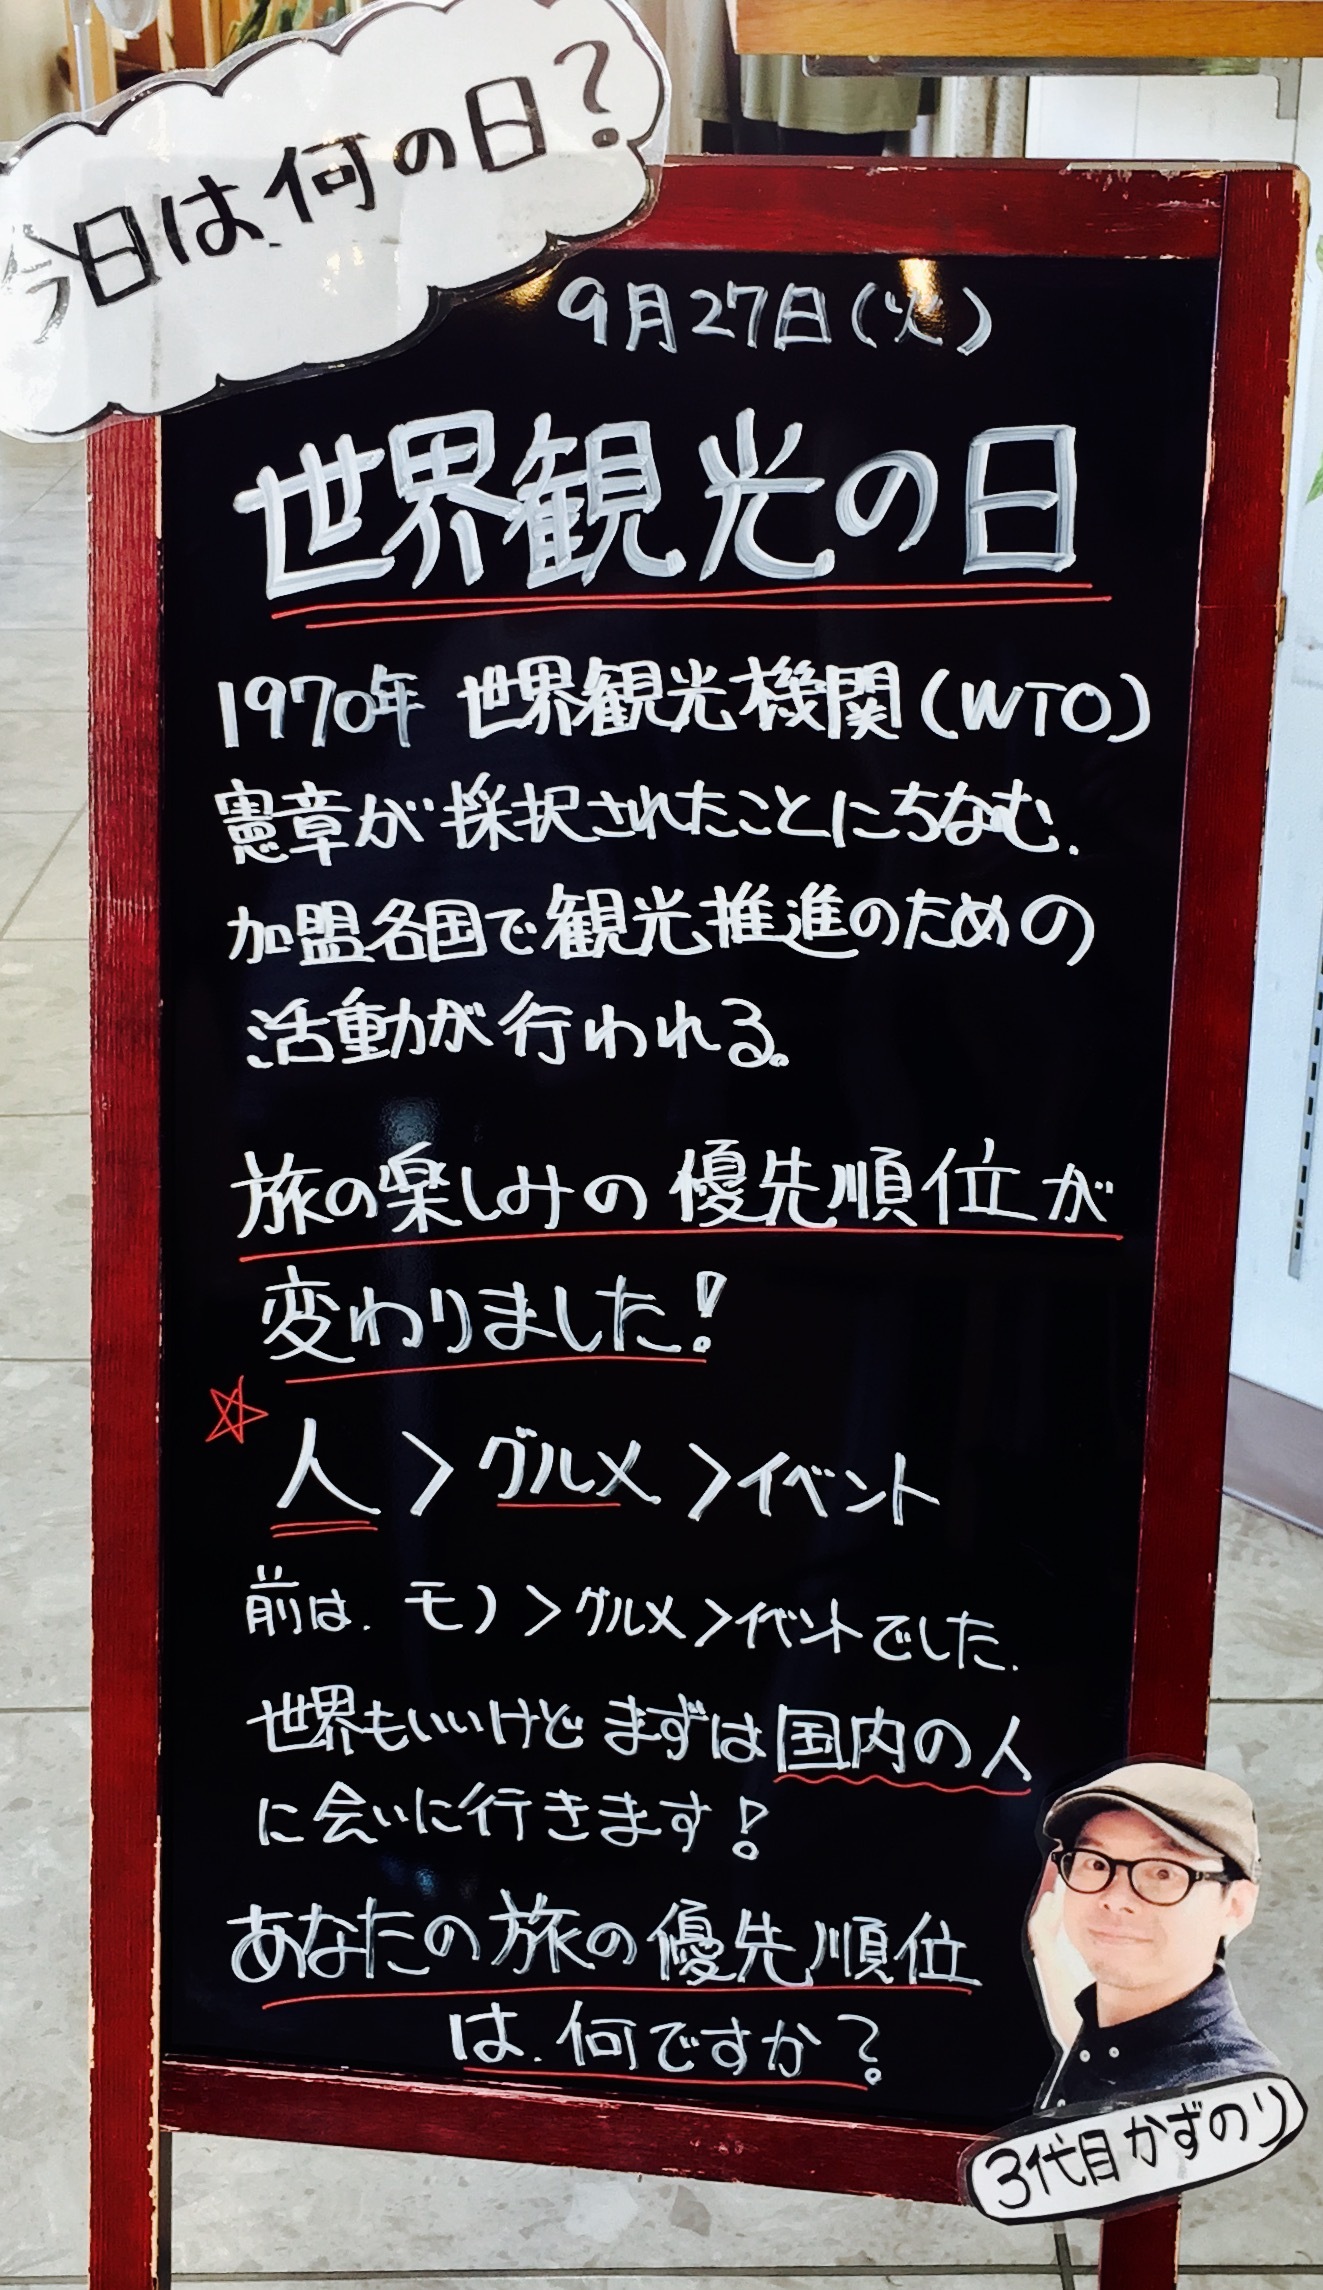 今日は、何の日?
9月27日(火)
世界観光の日
1970年 世界観光機関(WTO)
憲章が採択されたことにちなむ.
加盟各国で観光推進のための
活動が行われる。
旅の楽しみの優先順位が
変わりました!
人>グルメ>イベント
前は、モノ>グルメ>イベントでした.
世界もいいけど まずは国内の人
に会いに行きます!
あなたの旅の優先順位
は、何ですか?
3代目かずのり